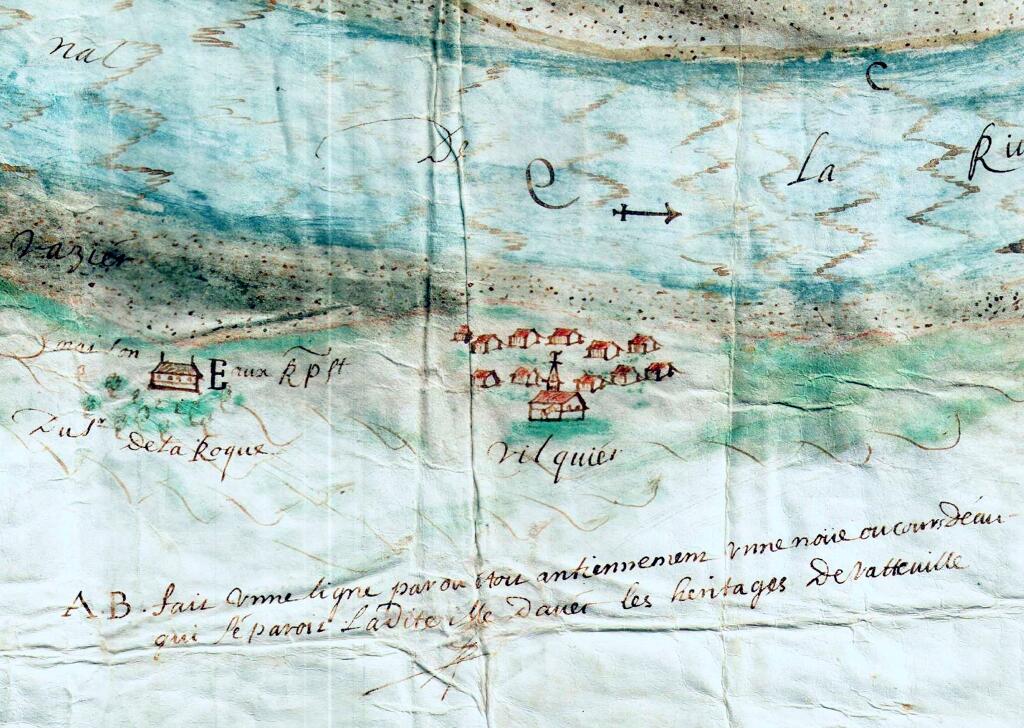 nal
De
C
La
Riu
C
vazier
maison
E
Du Sr
de la Roque
vilquier
A B. fait vnne ligne par ou étoit antiennement vnne noüe ou cours déau
qui séparoit Ladite isle Dauec les heritages De Vatteuille